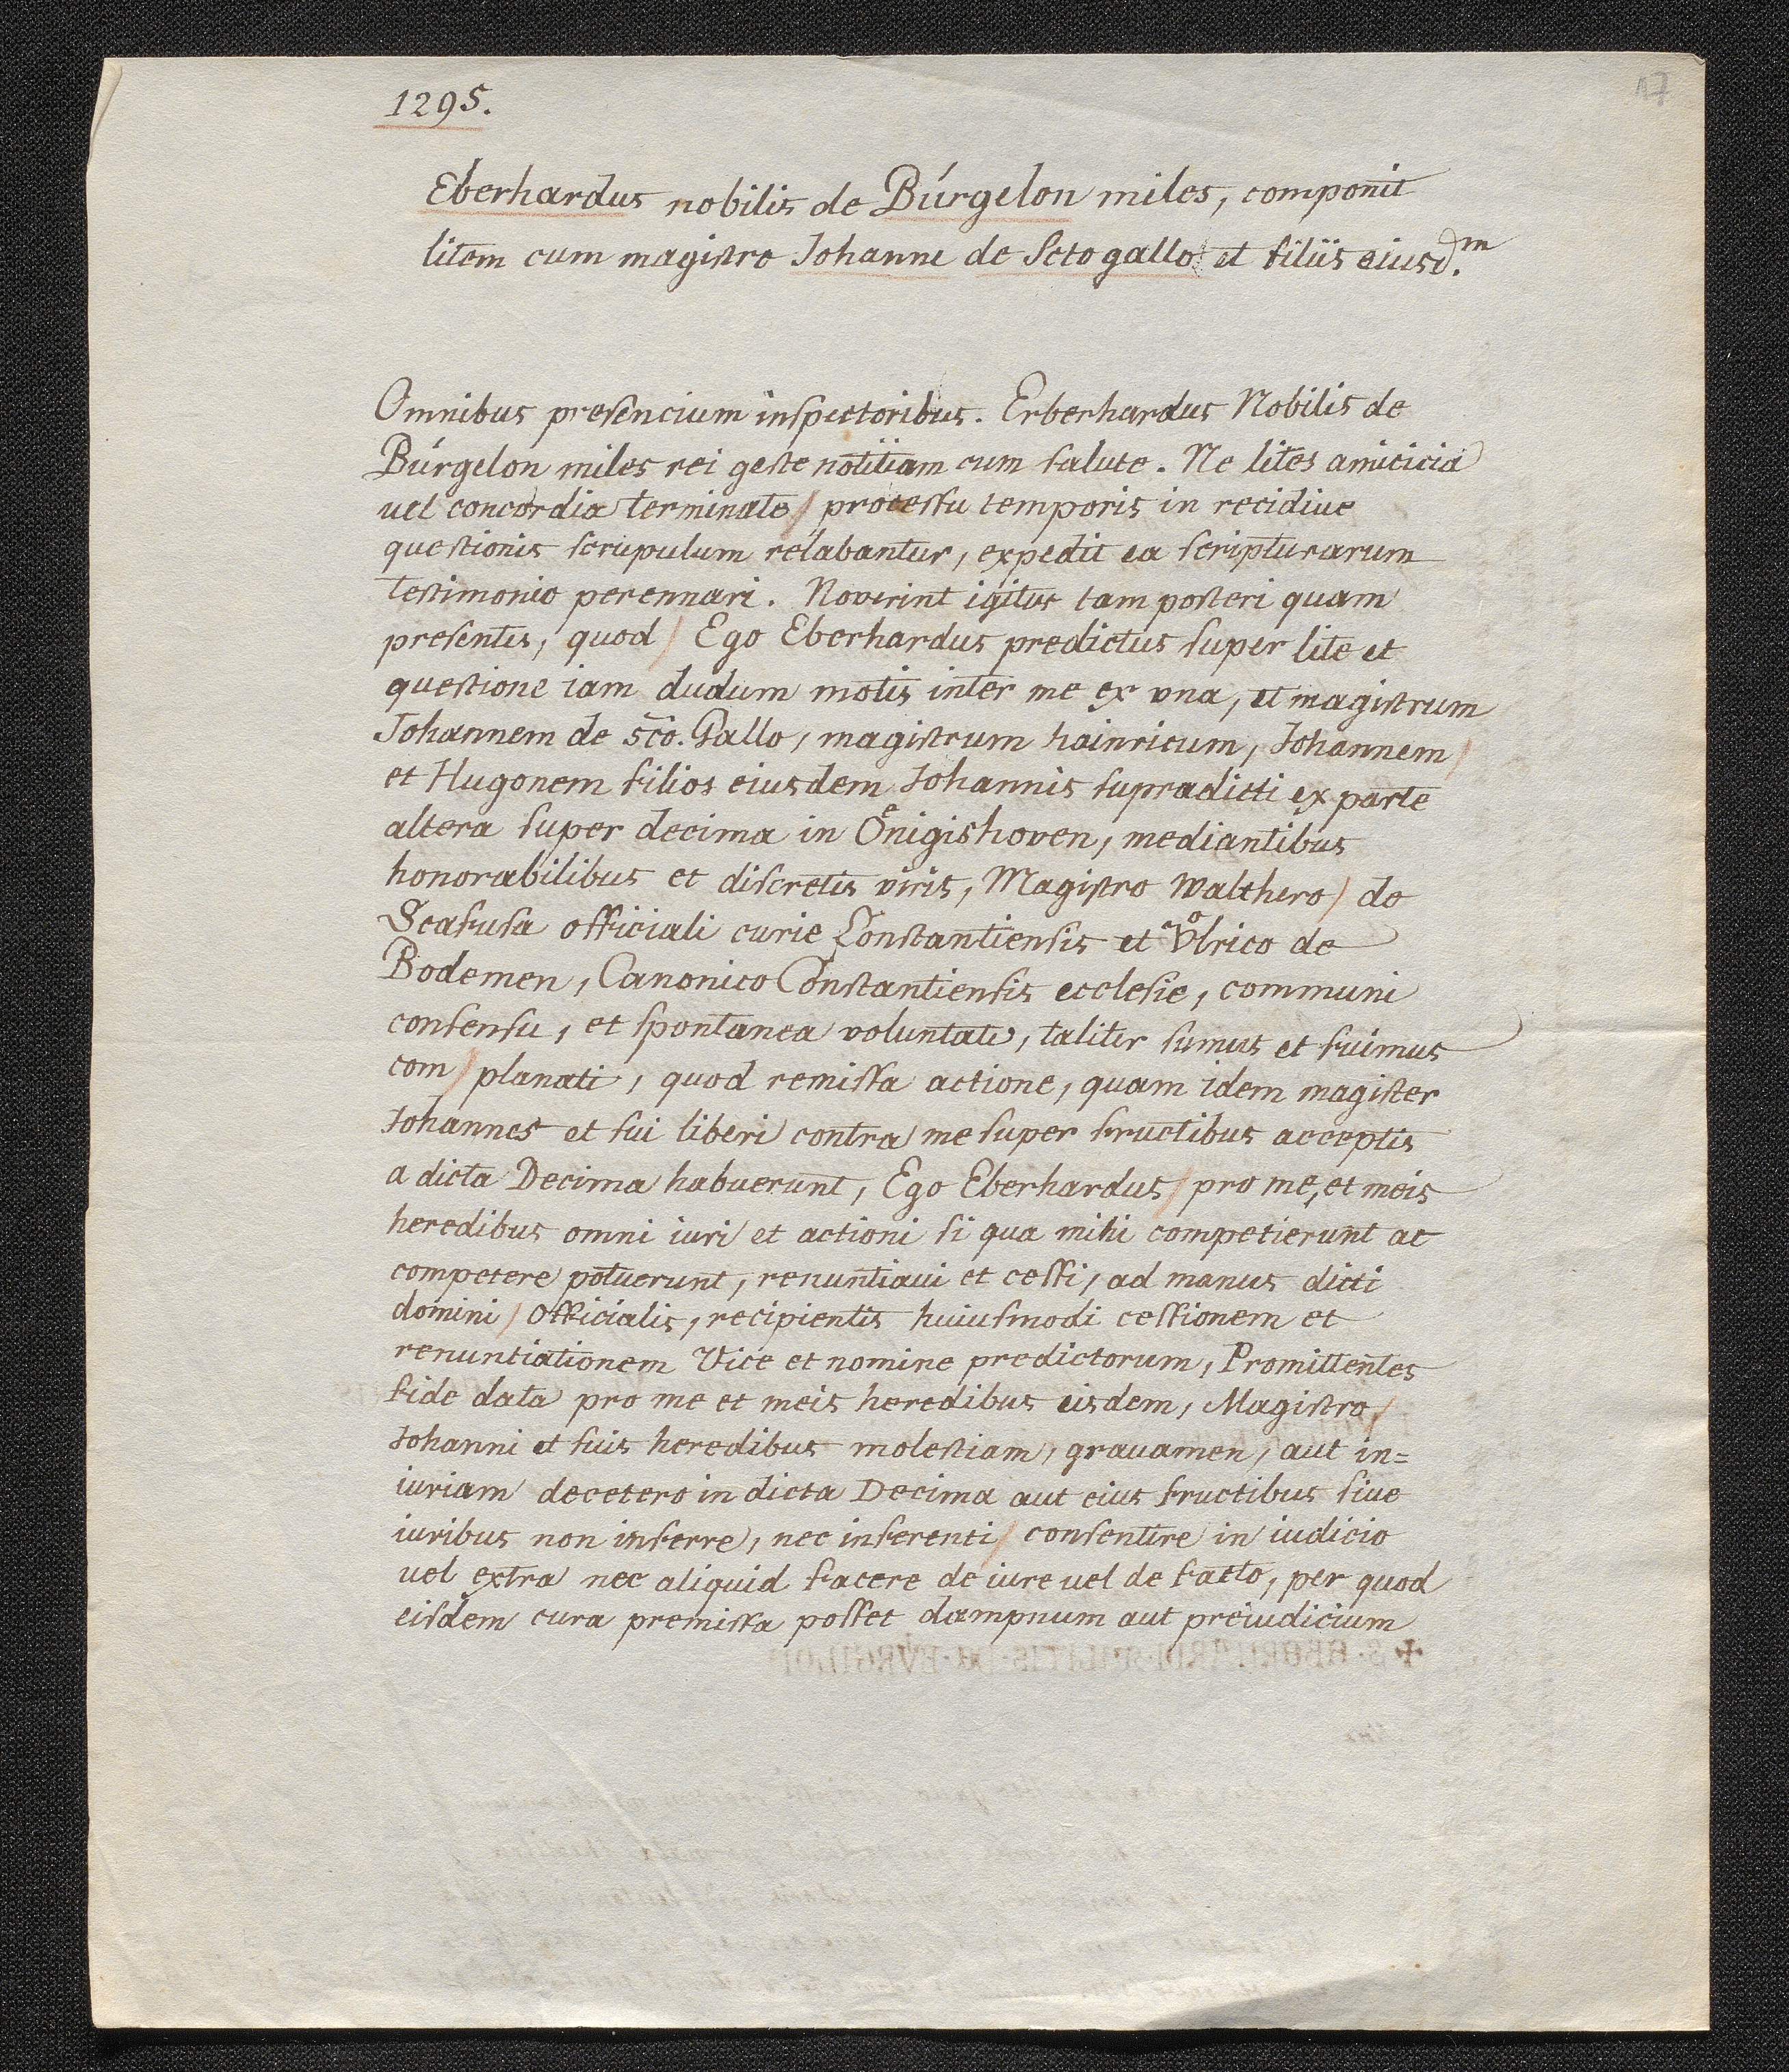 17
1295.
Eberhardus nobilis de Búrgelon miles, componit
litem cum magistro Johanne de Scto gallo et filiis eiusd.m
Omnibus presencium inspectoribus. Erberhardus Nobilis de
Búrgelon miles rei geste notitiam cum salute. Ne lites amicicia
uel concordia terminate / processu temporis in recidiue
questionis scrupulum relabantur, expedit ea scripturarum
testimonio perennari. Noverint igitur tam posteri quam
presentes, quod / Ego Eberhardus predictus super lite et
questione iam dudum motis inter me ex vna, et magistrum
Johannem de sc̃o. Gallo, magistrum hainricum, Johannem /
et Hugonem filios eiusdem Johannis supradicti ex parte
altera super decima in Oͤnigishoven, mediantibus
honorabilibus et discretis viris, Magistro Walthero / de
Scafusa officiali curie Constantiensis et Vͦlrico de
Bodemen, Canonico Constantiensis ecclesie, communi
consensu, et spontanea voluntate, taliter sumus et fuimus
com / planati, quod remissa actione, quam idem magister
Johannes et sui liberi contra me super fructibus acceptis
a dicta Decima habuerunt, Ego Eberhardus / pro me, et meis
heredibus omni iuri et actioni si qua mihi competierunt ac
competere potuerunt, renuntiaui et cessi, ad manus dicti
domini / Officialis, recipientis huiusmodi cessionem et
renuntiationem Vice et nomine predictorum, Promittentes
fide data pro me et meis heredibus eisdem, Magistro /
Johanni et suis heredibus molestiam, grauamen, aut in=
iuriam decetero in dicta Decima aut eius fructibus siue
iuribus non inferre, nec inferenti / consentire in iudicio
uel extra nec aliquid facere de iure uel de facto, per quod
eisdem cura premissa posset dampnum aut preiudicium